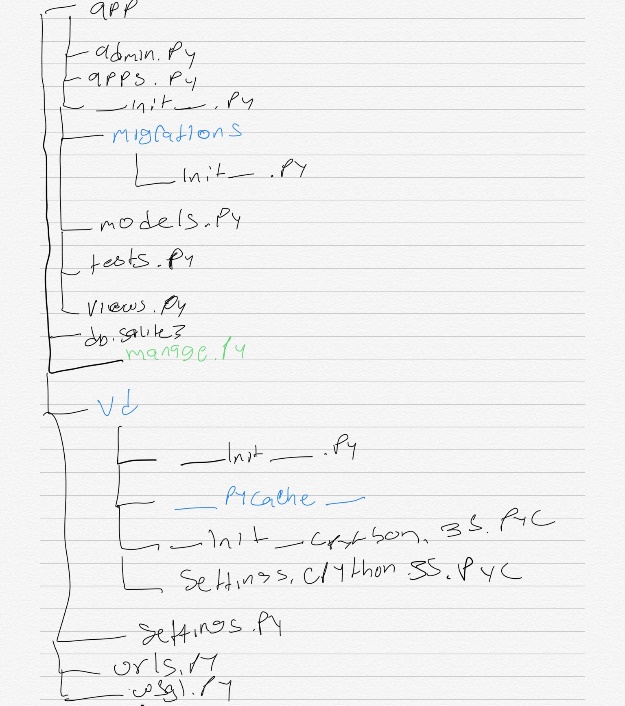 app
admin.py
apps.py
__init__.py
migrations
__init__.py
models.py
tests.py
views.py
db.sqlite3
manage.py
vd
__init__.py
__pycache__
__init__.cpython.35.pyc
settings.cpython.35.pyc
settings.py
urls.py
wsgi.py